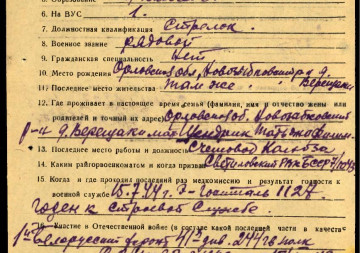 6. На ВУС 1.
7. Должностная квалификация стрелок.
8. Военное звание рядовой
9. Гражданская специальность нет
10. Место рождения Орловской обл, Новозыбковский р-н д. Верещаки
11. Последнее место жительства там же.
12. Где проживает в настоящее время семья (фамилия, имя и отчество жены или
родителей и точный их адрес) Орловской обл. Новозыбковский
р-н д. Верещаки мать Шендрик Татьяна
13. Последнее место работы и должность колхоз
14. Каким райгорвоенкоматом и когда призван РВК БССР
15. Когда и где проходил последний раз медкомиссию и результат годности к
военной службе 15.7.44 г. Э-госпиталь 1124
годен к строевой службе.
16. Участие в Отечественной войне (в составе какой последней части и в качестве
1й Белорусский фронт 41 див. 244 гв полк